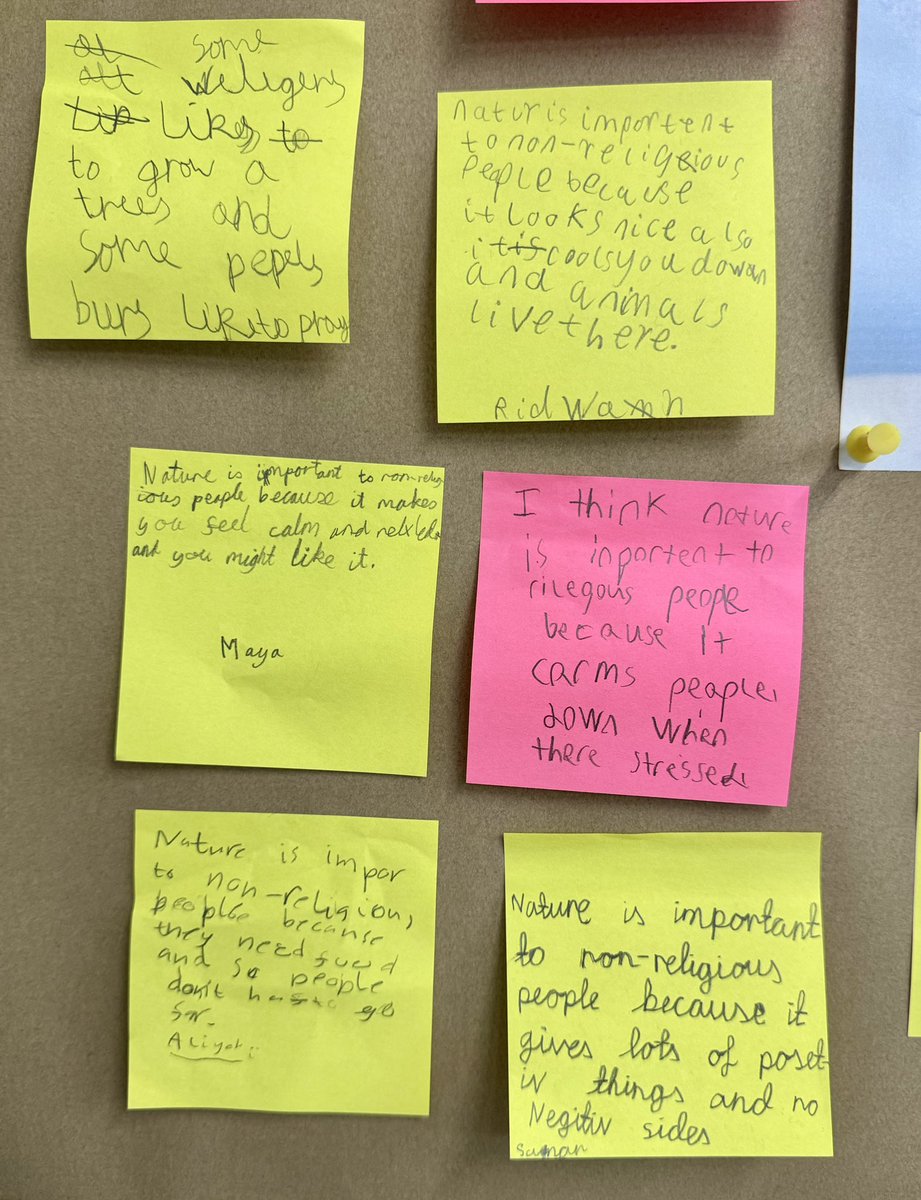 some
weligens
likes
to grow a
trees and
some pepels
burs like to pray
natur is importent
to non-religeious
people because
it looks nice also
it cools you dowan
and animals
live there.
Ridwanh
Nature is important to non-relig
ious people because it makes
you feel calm and
and you might like it.
Maya
I think nature
is inportent to
rilegous people
because it
carms peaple,
down when
there stressed.
Nature is impor
to non-religious,
people because
they need fued
and so people
don't go
sar.
Aliyah
Nature is important
to non-religious
people because it
gives lots of poset-
iv things and no
Negitiv sides
Suman